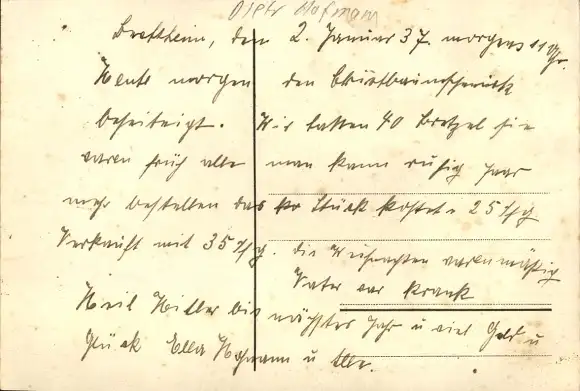 Dietr Hofmann
Brettheim, den 2. Januar 37. morgens 11 Uhr.
Heute morgen den Christbaumschmuck
beseitigt. Wir hatten 40 Bretzel sie
waren früh alle man kann ruhig paar
mehr bestellen das Stück kostete 25 Pfg
Verkauft mit 35 Pfg. die Weihnachten waren mäßig
Vater war krank
Heil Hitler bis nächstes Jahr u viel Geld u
Glück Ella Hofmann u Alle.